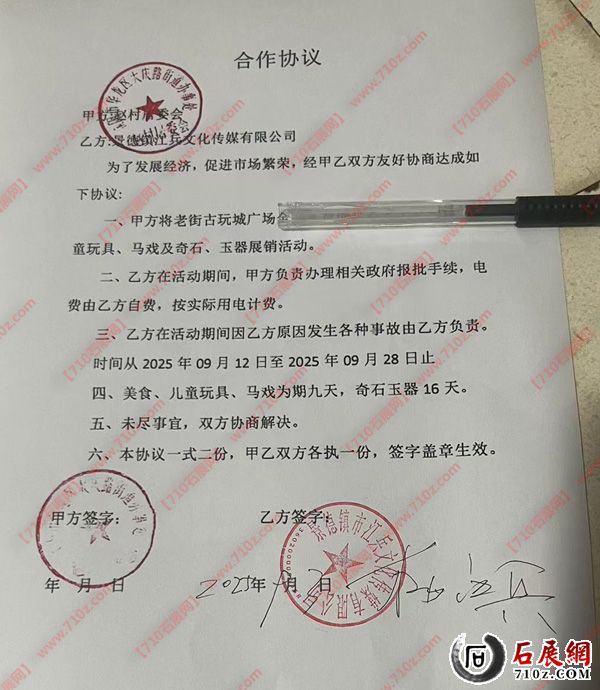 合作协议
甲方:赵村居委会
乙方:景德镇江兵文化传媒有限公司
为了发展经济，促进市场繁荣，经甲乙双方友好协商达成如
下协议:
一、甲方将老街古玩城广场
童玩具、马戏及奇石、玉器展销活动。
二、乙方在活动期间，甲方负责办理相关政府报批手续，电
费由乙方自费，按实际用电计费。
三、乙方在活动期间因乙方原因发生各种事故由乙方负责。
时间从 2025 年 09 月 12 日至 2025 年 09 月 28 日止
四、美食、儿童玩具、马戏为期九天，奇石玉器 16 天。
五、未尽事宜，双方协商解决。
六、本协议一式二份，甲乙双方各执一份，签字盖章生效。
甲方签字:
乙方签字:
景德镇市江兵文化传媒有限公司
年 月 日
2025年 月 日
【710石展网】www.710z.com
石展網
710z.com